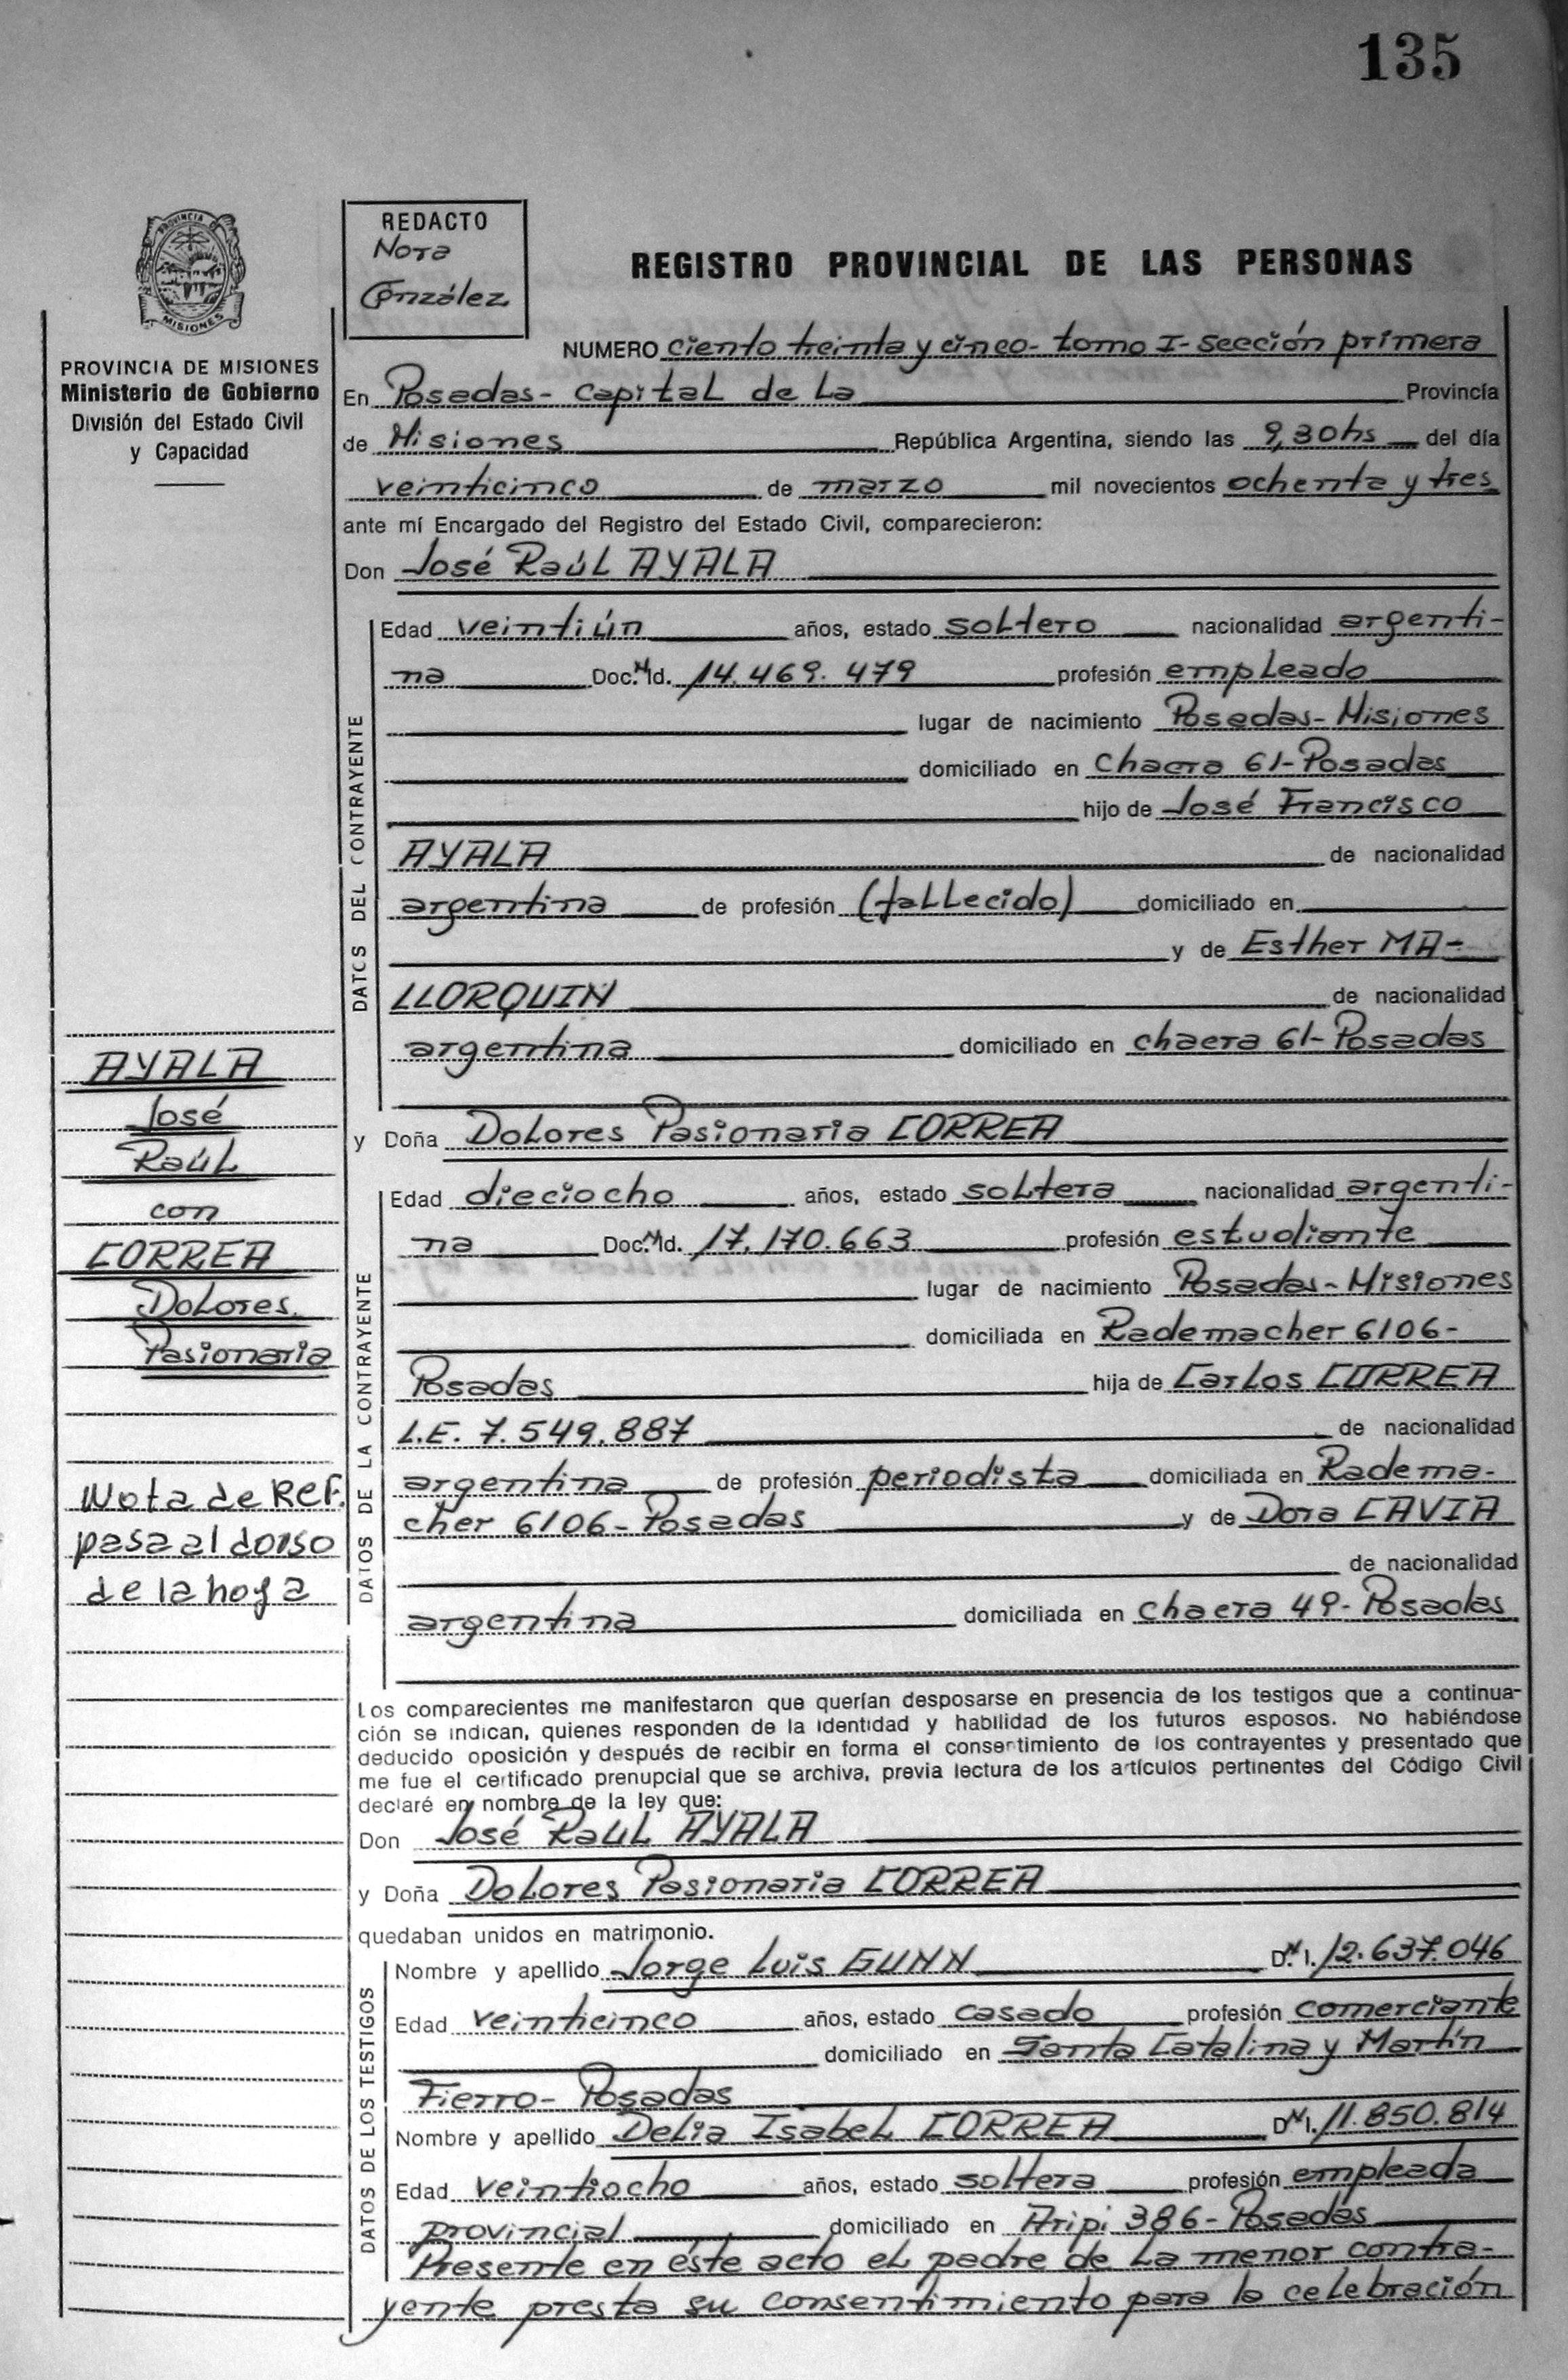 135
PROVINCIA DE
MISIONES
PROVINCIA DE MISIONES
Ministerio de Gobierno
División del Estado Civil
y Capacidad
REDACTO
Nora
González
REGISTRO PROVINCIAL DE LAS PERSONAS
NUMERO ciento treinta y cinco- tomo I- sección primera
En Posadas- Capital de La Provincia
de Misiones República Argentina, siendo las 9,30hs del día
veinticinco de marzo mil novecientos ochenta y tres
ante mí Encargado del Registro del Estado Civil, comparecieron:
Don José Raúl AYALA
DATOS DEL CONTRAYENTE
Edad veintiún años, estado soltero nacionalidad argenti-
na Doc. N Id. 14.469.479 profesión empleado
lugar de nacimiento Posadas- Misiones
domiciliado en Chacra 61- Posadas
hijo de José Francisco
AYALA de nacionalidad
argentina de profesión (fallecido) domiciliado en
y de Esther MA-
LLORQUIN de nacionalidad
argentina domiciliado en chacra 61- Posadas
y Doña Dolores Pasionaria CORREA
DATOS DE LA CONTRAYENTE
Edad dieciocho años, estado soltera nacionalidad argenti-
na Doc. N Id. 17.170.663 profesión estudiante
lugar de nacimiento Posadas- Misiones
domiciliada en Rademacher 6106-
Posadas hija de Carlos CORREA
L.E. 7.549.887 de nacionalidad
argentina de profesión periodista domiciliada en Radema-
cher 6106- Posadas y de Dora CAVIA
de nacionalidad
argentina domiciliada en chacra 49- Posadas
AYALA
José
Raúl
con
CORREA
Dolores
Pasionaria
Nota de Ref.
pasa al dorso
de la hoja
Los comparecientes me manifestaron que querían desposarse en presencia de los testigos que a continua-
ción se indican, quienes responden de la identidad y habilidad de los futuros esposos. No habiéndose
deducido oposición y después de recibir en forma el consertimiento de los contrayentes y presentado que
me fue el certificado prenupcial que se archiva, previa lectura de los artículos pertinentes del Código Civil
declaré en nombre de la ley que:
Don José Raúl AYALA
y Doña Dolores Pasionaria CORREA
quedaban unidos en matrimonio.
DATOS DE LOS TESTIGOS
Nombre y apellido Jorge Luis GUNN D.N.I. 12.637.046
Edad veinticinco años, estado casado profesión comerciante
domiciliado en Santa Catalina y Martín
Fierro- Posadas
Nombre y apellido Delia Isabel CORREA D.N.I. 11.850.814
Edad veintiocho años, estado soltera profesión empleada
provincial domiciliado en Aripi 386- Posadas
Presente en éste acto el padre de la menor contra-
yente presta su consentimiento para la celebración